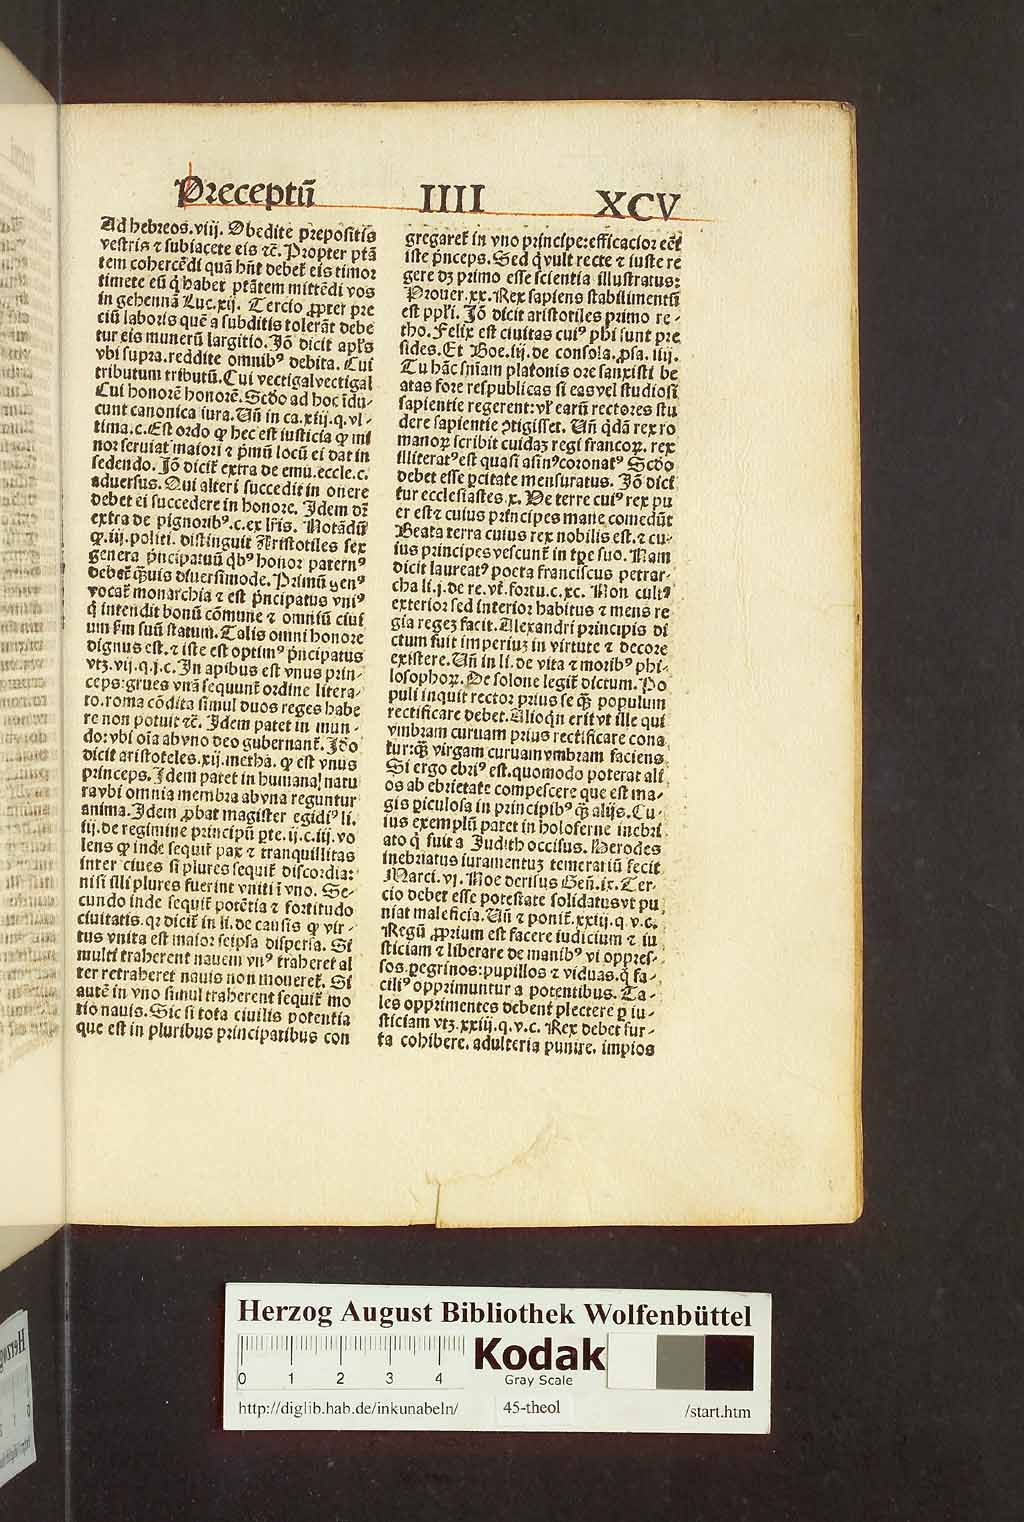 Preceptū IIII XCV
Ad hebreos.viij. Obedite prepositis
vestris ⁊ subiacete eis ⁊c̄. Propter ptā
tem cohercēdi quā hn̄t debet̄ eis timor
timete eū q̇ habet ptātem mittēdi vos
in gehennā Luc.xij. Tercio ꝓpter pre
ciū laboris quē a subditis tolerāt debe
tur eis munerū largitio. Jō dicit apl̄s
vbi supra.reddite omnibꝰ debita. Cui
tributum tributū. Cui vectigal vectigal
Cui honorē honorē. Scd̄o ad hoc īdu-
cunt canonica iura. Uñ in ca.xiij.q.vl-
tima.c. Est ordo ꝙ hec est iusticia ꝙ mi
nor seruiat maiori ⁊ pⁱmū locū ei dat in
sedendo. Jō dicit̄ extra de emū.eccle.c.
aduersus. Qui alteri succedit in onere
debet ei succedere in honore. Idem dꝛ̄
extra de pignoribꝰ.c.ex lr̄is. Notādū
ꝙ.iij.politi. distinguit Aristotiles sex
genera pⁱncipatuū qⁱbꝰ honor paternꝰ
debet̄ ꝙ̄uis diuersimode. Primū genꝰ
vocat̄ monarchia ⁊ est pⁱncipatus vniꝰ
q̇ intendit bonū cōmune ⁊ omniū ciui
um fm̄ suū statum. Talis omni honore
dignus est. ⁊ iste est optimꝰ pⁱncipatus
vtꝫ.vij.q.j.c. In apibus est vnus prin-
ceps:grues vnā sequunt̄ ordine litera-
to.roma cōdita simul duos reges habe
re non potuit ⁊c̄. Idem patet in mun-
do:vbi oīa ab vno deo gubernant̄. Iō
dicit aristoteles.xij.metha. ꝙ est vnus
princeps. Idem patet in humana natu
ra vbi omnia membra ab vna reguntur
anima. Idem ꝓbat magister egidiꝰ li.
iij.de regimine principū ꝑte.ij.c.iij.vo
lens ꝙ inde sequit̄ pax ⁊ tranquillitas
inter ciues si plures sequit̄ discordia:
nisi illi plures fuerint vniti ī vno. Se-
cundo inde sequit̄ potētia ⁊ fortitudo
ciuitatis.qꝛ dicit̄ in li.de causis ꝙ vir-
tus vnita est maior seipsa dispersa. Si
multi traherent nauem vnꝰ traheret al
ter retraheret nauis non moueret̄. Si
autē in vno simul traherent sequit̄ mo
tio nauis. Sic si tota ciuilis potentia
que est in pluribus principatibus con
gregaret̄ in vno principe:efficacior eēt
iste pⁱnceps. Sed q̇ vult recte ⁊ iuste re
gere dꝫ primo esse scientia illustratus:
Prouer.xx. Rex sapiens stabilimentū
est ppl̄i. Jō dicit aristotiles primo re-
tho. Felix est ciuitas cuiꝰ phī sunt pre
sides. Et Boe.iij.de consola.ꝓsa.iiij.
Tu hāc sn̄iam platonis ore sanxisti be
atas fore respublicas si eas vel studiosi
sapientie regerent:vl̄ earū rectores stu
dere sapientie ↄtigisset. Uñ q̇dā rex ro
manoꝝ scribit cuidaꝫ regi francoꝝ. rex
illiteratꝰ est quasi asinꝰ coronatꝰ Scd̄o
debet esse ꝑcitate mensuratus. Jō dici
tur ecclesiastes.x. Ve terre cuiꝰ rex pu
er est ⁊ cuius principes mane comedūt
Beata terra cuius rex nobilis est.⁊ cu-
ius principes vescunt̄ in tꝑe suo. Nam
dicit laureatꝰ poeta franciscus petrar-
cha li.j.de re.vt̄.fortu.c.xc. Non cultꝰ
exterior sed interior habitus ⁊ mens re
gia regeꝫ facit. Alexandri principis di
ctum fuit imperiuꝫ in virtute ⁊ decore
existere. Uñ in li.de vita ⁊ moribꝰ phi-
losophoꝝ. De solone legit̄ dictum. Po
puli inquit rector prius se ꝙ̄ populum
rectificare debet. Alioqⁱn erit vt ille qui
vmbram curuam prius rectificare cona
tur:ꝙ̄ virgam curuam vmbram faciens
Si ergo ebriꝰ est.quomodo poterat ali
os ab ebrietate compescere que est ma-
gis ꝑiculosa in principibꝰ ꝙ̄ alijs. Cu-
ius exemplū patet in holoferne inebri
ato q̇ fuit a Judith occisus. Herodes
inebriatus iuramentuꝫ temeratiū fecit
Marci.vj. Noe derisus Geñ.ix. Ter-
cio debet esse potestate solidatus vt pu
niat maleficia. Uñ ⁊ ponit̄.xxiij.q.v.c.
Regū ꝓprium est facere iudicium ⁊ iu
sticiam ⁊ liberare de manibꝰ vi oppres-
sos.ꝑegrinos:pupillos ⁊ viduas.q̇ fa-
ciliꝰ opprimuntur a potentibus. Ta-
les opprimentes debent plectere ꝑ iu-
sticiam vtꝫ.xxiij.q.v.c. Rex debet fur-
ta cohibere. adulteria punire. impios
Herzog August Bibliothek Wolfenbüttel
0 1 2 3 4
Kodak
Gray Scale
http://diglib.hab.de/inkunabeln/ 45-theol /start.htm